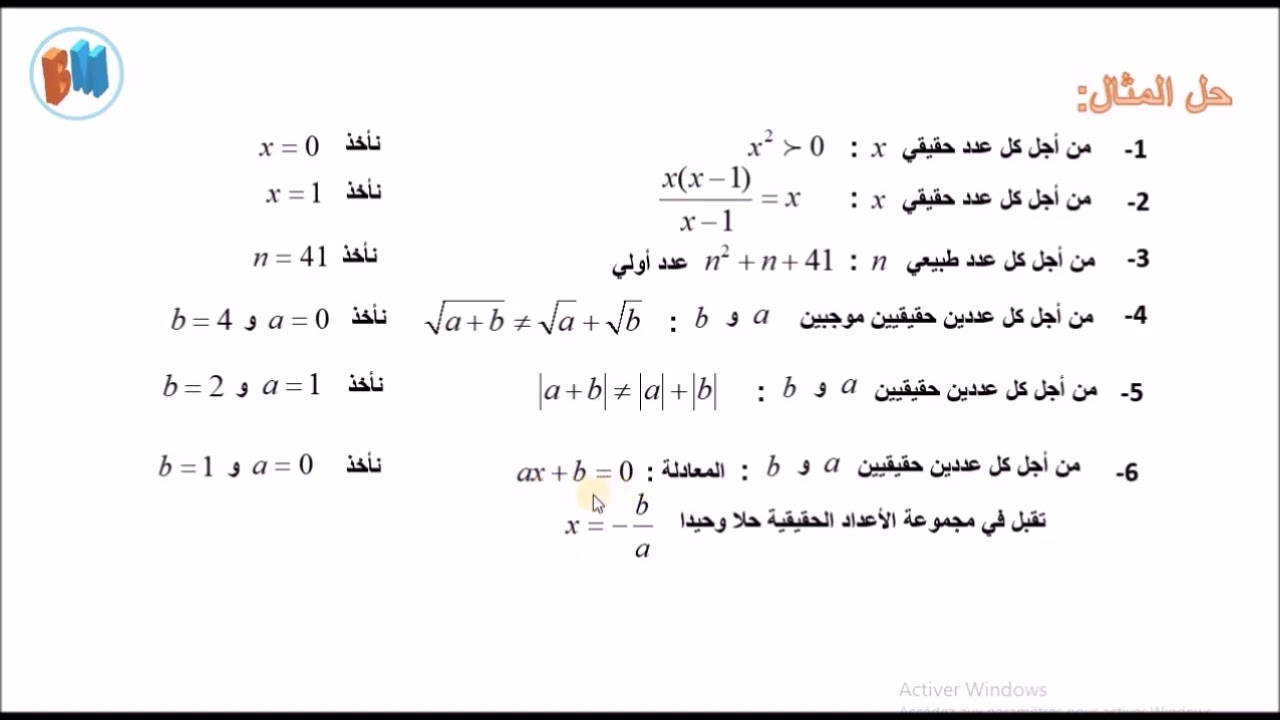 BM
حل المثال:
1- من أجل كل عدد حقيقي x : x² ≻ 0 نأخذ x = 0
2- من أجل كل عدد حقيقي x : x(x−1)/(x−1) = x نأخذ x = 1
3- من أجل كل عدد طبيعي n : n² + n + 41 عدد أولي نأخذ n = 41
4- من أجل كل عددين حقيقيين موجبين a و b : √(a+b) ≠ √a + √b نأخذ a = 0 و b = 4
5- من أجل كل عددين حقيقيين a و b : |a+b| ≠ |a|+|b| نأخذ a = 1 و b = 2
6- من أجل كل عددين حقيقيين a و b : المعادلة : ax + b = 0 نأخذ a = 0 و b = 1
تقبل في مجموعة الأعداد الحقيقية حلا وحيدا x = −b/a
Activer Windows